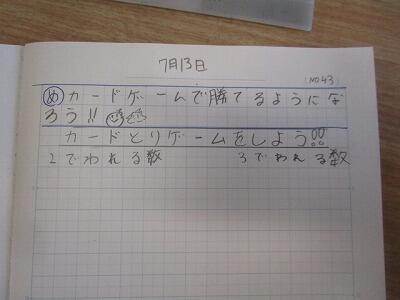 7月13日
(NO43)
め カードゲームで勝てるようにな
ろう!!
カードとりゲームをしよう!!
2でわれる数 3でわれる数